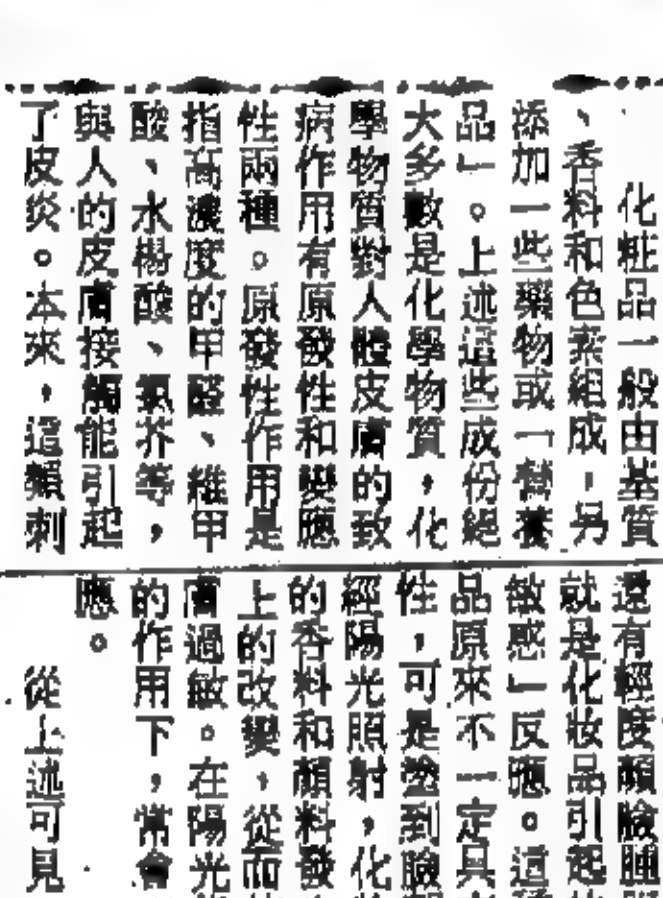 化粧品一般由基質
、香料和色素組成，另
添加一些藥物或「營養
品」。上述這些成份絕
大多數是化學物質，化
學物質對人體皮膚的致
病作用有原發性和變應
性兩種。原發性作用是
指高濃度的甲醛、維甲
酸、水楊酸、氮芥等，
與人的皮膚接觸能引起
了皮炎。本來，這類刺
還有輕度顏臉腫
就是化妝品引起
敏感」反應。這
品原來不一定具
性，可是塗到臉
經陽光照射，化
的香料和顏料發
上的改變，從而
膚過敏。在陽光
的作用下，常會
應。
從上述可見